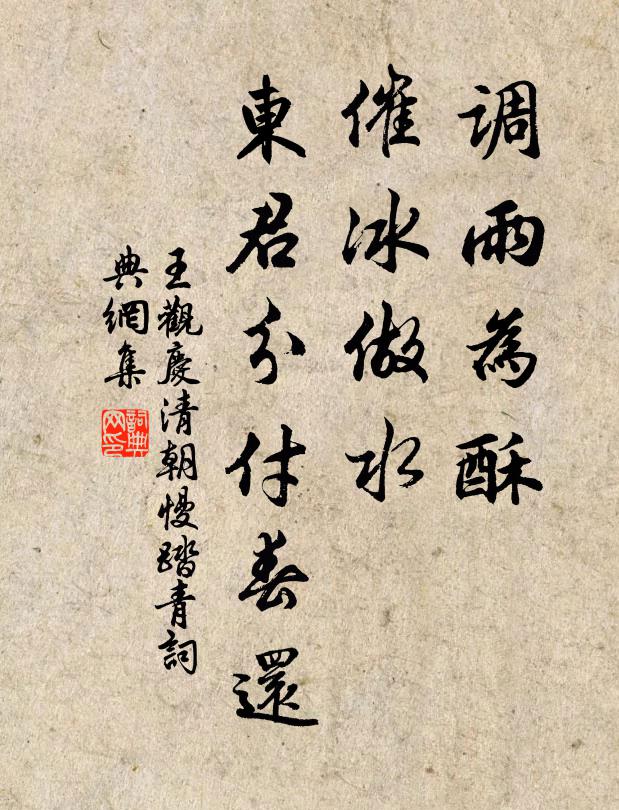 調雨為酥
催冰做水
東君分付春還
王觀慶清朝慢踏青詞
典網集
詞典网印